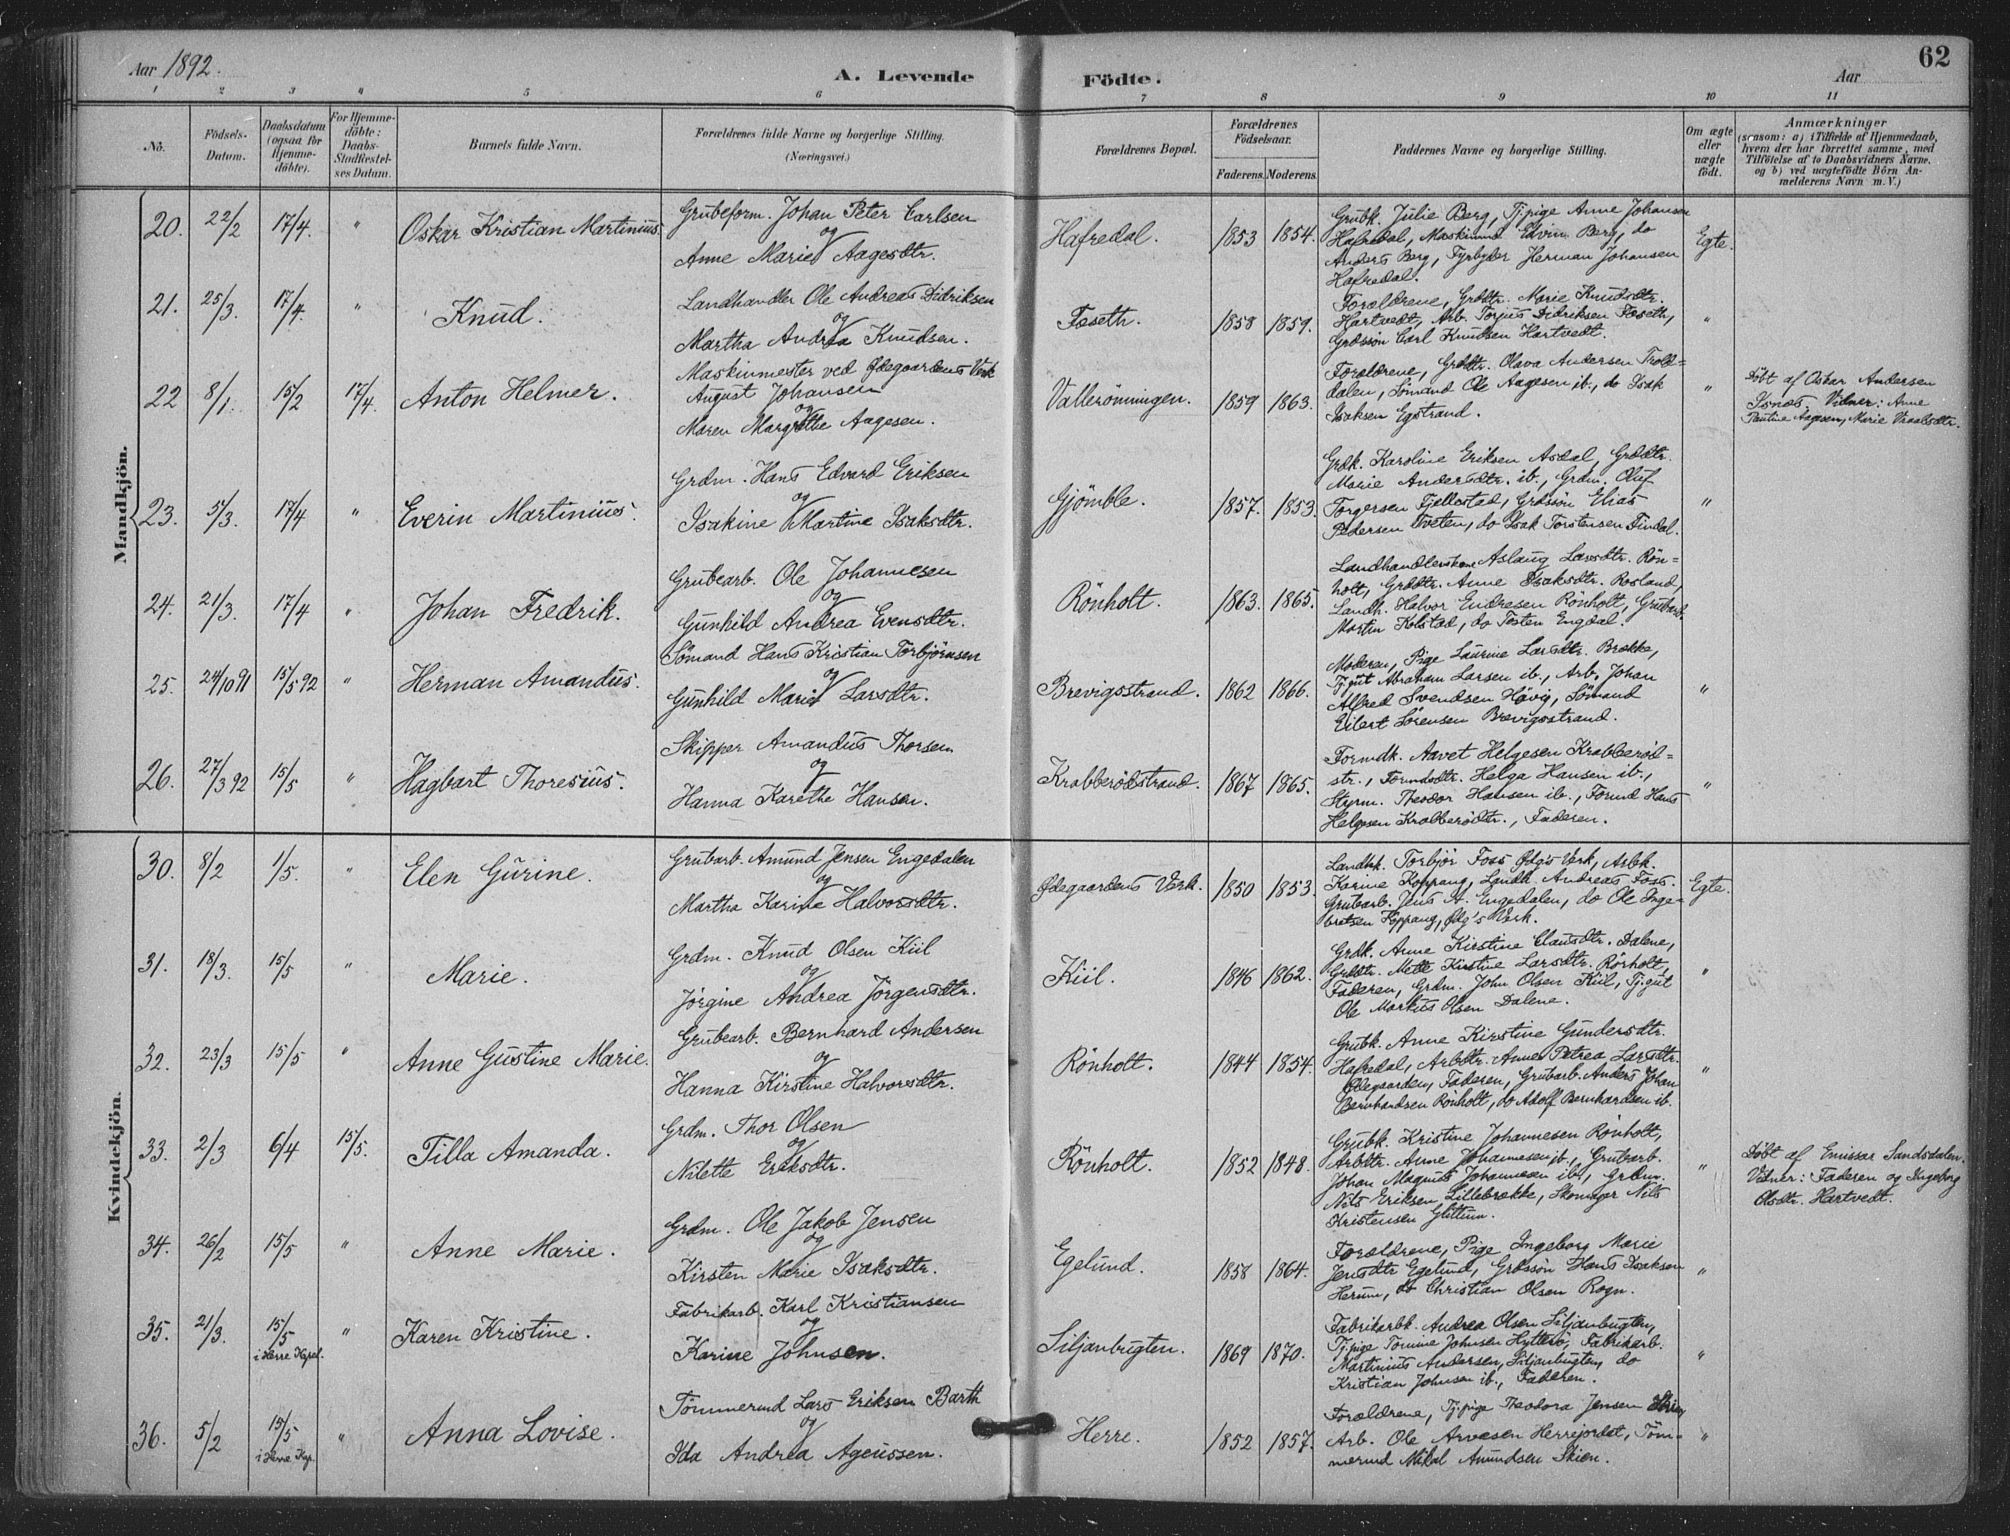 Aar 1892.
A. Levende Födte.
Aar
62
1 2 3 4 5 6 7 8 9 10 11
No.
Födsels-Datum.
Daabsdatum (ogsaa for Hjemme-döbte).
For Hjemme-döbte: Daabs-Stadfæstel-ses Datum.
Barnets fulde Navn.
Forældrenes fulde Navne og borgerlige Stilling.
(Næringsvei.)
Forældrenes Bopæl.
Forældrenes Födselsaar.
Faderens. Moderens.
Faddernes Navne og borgerlige Stilling.
Om ægte eller uægte födt.
Anmærkninger
(saasom: a) i Tilfælde af Hjemmedaab,
hvem der har forrettet samme, med
Tilföielse af to Daabsvidners Navne,
og b) ved uægtefödte Börn An-
melderens Navn m. V.)
Mandkjön.
20. 22/2 17/4. " Oskar Kristian Martinius.
Grubeform. Johan Peter Carlsen
og
Anne Marie Aagesdtr.
Hafredal. 1853 1854.
Grubk. Julie Berg, Tj.pige Anne Johansen
Hafredal, Maskinmd Edvin Berg, do
Anders Berg, Fyrbyder Herman Johansen
Hafredal.
Egte.
21. 25/3. 17/4. " Knud.
Landhandler Ole Andreas Didriksen
og
Martha Andrea Knudsen.
Foseth. 1858 1859.
Forældrene, Grdtr. Marie Knudsdtr.
Hartvedt, Arb. Torjus Didriksen Foseth,
Grdssøn Carl Knudsen Hartvedt.
"
22 8/1. 15/2 17/4. Anton Helmer.
Maskinmester ved Ødegaardens Verk
August Johansen
og
Maren Margrethe Aagesen.
Vallerømningen. 1859 1863.
Forældrene, Grdtr. Olava Andersen Trold-
dalen, Sømand Ole Aagesen ib., do Isak
Isaksen Egstrand.
"
Döbt af Oskar Andersen
Isnæs. Vidner: Anne
Pauline Aagesen, Marie Vraalsdtr.
23. 5/3. 17/4 " Everin Martinius.
Grdm. Hans Edvard Eriksen
og
Isakine Martine Isaksdtr.
Gjömble. 1857. 1853.
Grdk. Karoline Eriksen Asdal, Grddtr.
Marie Andersdtr. ib., Grdm. Oluf
Torgersen Fjellestad, Grdssøn Elias
Pedersen Tveten, do Isak Torstensen Findal.
"
24. 21/3. 17/4 " Johan Fredrik.
Grubearb. Ole Johannesen
og
Gunhild Andrea Evensdtr.
Rönholt. 1863. 1865.
Landhandlerskene Aslaug Larsdtr. Rön-
holt, Grddtr. Anne Isaksdtr. Rosland,
Landh. Halvor Endresen Rönholt, Grubarb.
Martin Kolstad, do Tosten Engdal.
25. 24/10 91 15/5 92 " Herman Amandus.
Sömand Hans Kristian Torbjörnsen
og
Gunhild Marie Larsdtr.
Brevigsstrand. 1862 1866.
Moderen, Pige Laurine Larsdtr. Brække,
Tj.gut Abraham Larsen ib., Arb. Johan
Alfred Svendsen Hövig, Sömand
Eilert Sörensen Brevigsstrand.
"
26. 27/3 92 15/5 " Hagbart Thoresius.
Skipper Amandus Thorsen
og
Hanna Karethe Hansen.
Krabberödstrand. 1867 1865.
Formdk. Aavet Helgesen Krabberöd-
str., Formdsdtr. Helga Hansen ib.,
Styrm. Theodor Hansen ib., Formd Hans
Helgesen Krabberödstr., Faderen.
"
Kvindekjön.
30. 8/2 1/5. " Elen Gurine.
Grubarb. Amund Jensen Engedalen
og
Martha Karine Halvorsdtr.
Ødegaardens Verk. 1850 1853.
Landhk. Torbjør Foss Ødg's Verk, Arbk.
Karine Koppang, Landh. Andreas Foss.
Grubarb. Jens A. Engedalen, do Ole Inge-
bretsen Koppang, Ødg's Verk.
Egte.
31. 18/3. 15/5 " Marie.
Grdm. Knud Olsen Kiil
og
Jörgine Andrea Jörgensdtr.
Kiil. 1846 1862.
Grdk. Anne Kirstine Clausdtr. Dalene,
Grddtr. Mette Kirstine Larsdtr. Rörholt,
Faderen, Grdm. John Olsen Kiil, Tj.gut
Ole Markus Olsen Dalene.
"
32. 23/3 15/5 " Anne Gustine Marie.
Grubearb. Bernhard Andersen
og
Hanna Kirstine Halvorsdtr.
Rönholt. 1844 1854.
Grubk. Anne Kirstine Gundersdtr.
Hafredal, Arbdtr. Anne Petrea Larsdtr.
Ødegaarden, Faderen, Grubarb. Anders Johan
Bernhardsen Rönholt, do Adolf Bernhardsen ib.
"
33. 2/3 6/4 15/5. Tilla Amanda.
Grdm. Thor Olsen
og
Nilette Eriksdtr.
Rönholt. 1852 1848.
Grubk. Kristine Johannesen Rönholt,
Arbdtr. Anne Johannesen ib., Grubarb.
Johan Magnus Johannesen ib., Grdm.
Nils Eriksen Lillebrække, Skomager Nils
Kristensen Glittum.
"
Döbt af Emissær Sandsdalen.
Vidner: Faderen og Ingeborg
Olsdtr. Hartvedt.
34. 26/2 15/5 " Anne Marie.
Grdm. Ole Jakob Jensen
og
Kirsten Marie Isaksdtr.
Egelund. 1858 1864.
Forældrene, Pige Ingeborg Marie
Jensdtr Egelund, Grdssön Hans Isaksen
Herum, do Christian Olsen Rogn.
"
35. 21/3. 15/5 i Herre Kapel. " Karen Kristine.
Fabrikarb. Karl Kristiansen
og
Karine Johnsen.
Siljanbugten. 1869 1870.
Fabrikarbk. Andrea Olsen Siljanbugten,
Tj.pige Tomine Johnsen Hytterö, Fabrikarb.
Martinius Andersen, Siljanbugten, do
Kristian Johnsen ib., Faderen.
"
36. 5/2 15/5 i Herre Kap. " Anna Lovise.
Tömmermd Lars Eriksen Barth
og
Ida Andrea Ageussen.
Herre. 1852 1857.
Forældrene, Tj.pige Theodora Jensen
Arb. Ole Arvesen Herrejordet, Töm-
mermd Mikal Amundsen Skien.
"